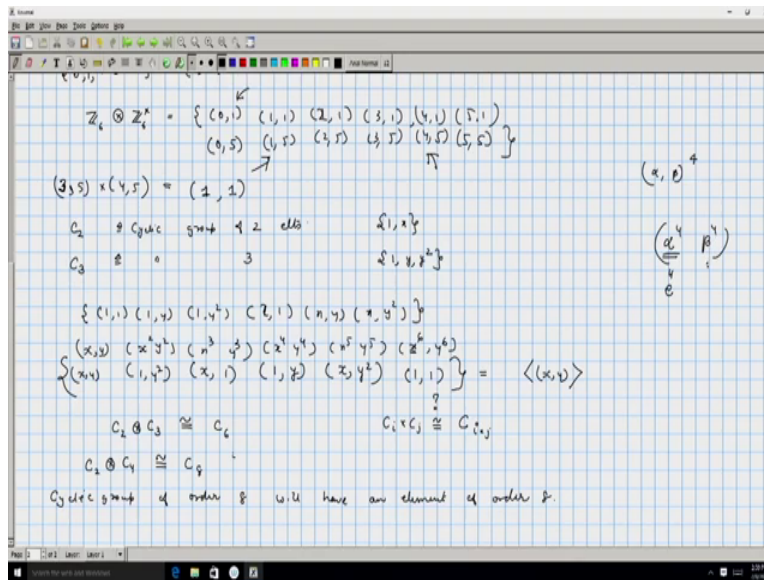 Journal
File Edit View Page Tools Options Help
ℤ₆ ⊗ ℤ₆ˣ = { (0,1) (1,1) (2,1) (3,1) (4,1) (5,1)
(0,5) (1,5) (2,5) (3,5) (4,5) (5,5) }
(3,5) × (4,5) = (1, 1)
(α, β)⁴
C₂ Cyclic group of 2 elts {1, x}
(α⁴ β⁴)
C₃ " 3 {1, y, y²}
e
{ (1,1) (1,y) (1,y²) (x,1) (x,y) (x,y²) }
(x,y) (x² y²) (x³ y³) (x⁴ y⁴) (x⁵ y⁵) (x⁶, y⁶)
{ (x,y) (1,y²) (x,1) (1,y) (x,y²) (1,1) } = ⟨(x,y)⟩
?
C₂ ⊗ C₃ ≅ C₆ Cᵢ × Cⱼ ≅ Cᵢ*ⱼ
C₂ ⊗ C₄ ≅ C₈
Cyclic group of order 8 will have an element of order 8.
Page 2 of 2 Layer: Layer 1
Search the web and Windows